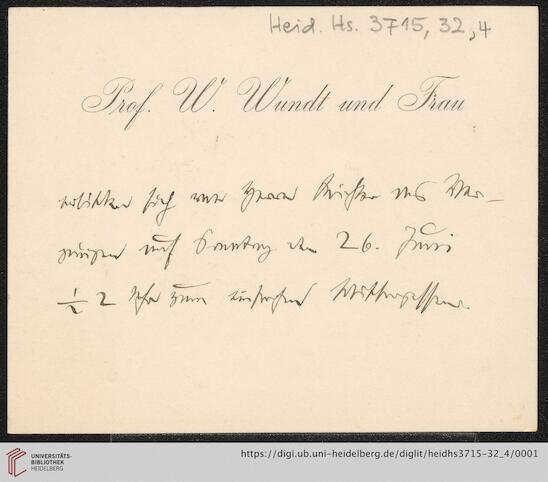 Heid. Hs. 3715, 32,4
Prof. W. Wundt und Frau
erbitten sich von Herrn das Ver-
gnügen auf Sonntag den 26. Juni
½ 2 Uhr zum einfachen Mittagessen.
UNIVERSITÄTS-
BIBLIOTHEK
HEIDELBERG
https://digi.ub.uni-heidelberg.de/diglit/heidhs3715-32_4/0001